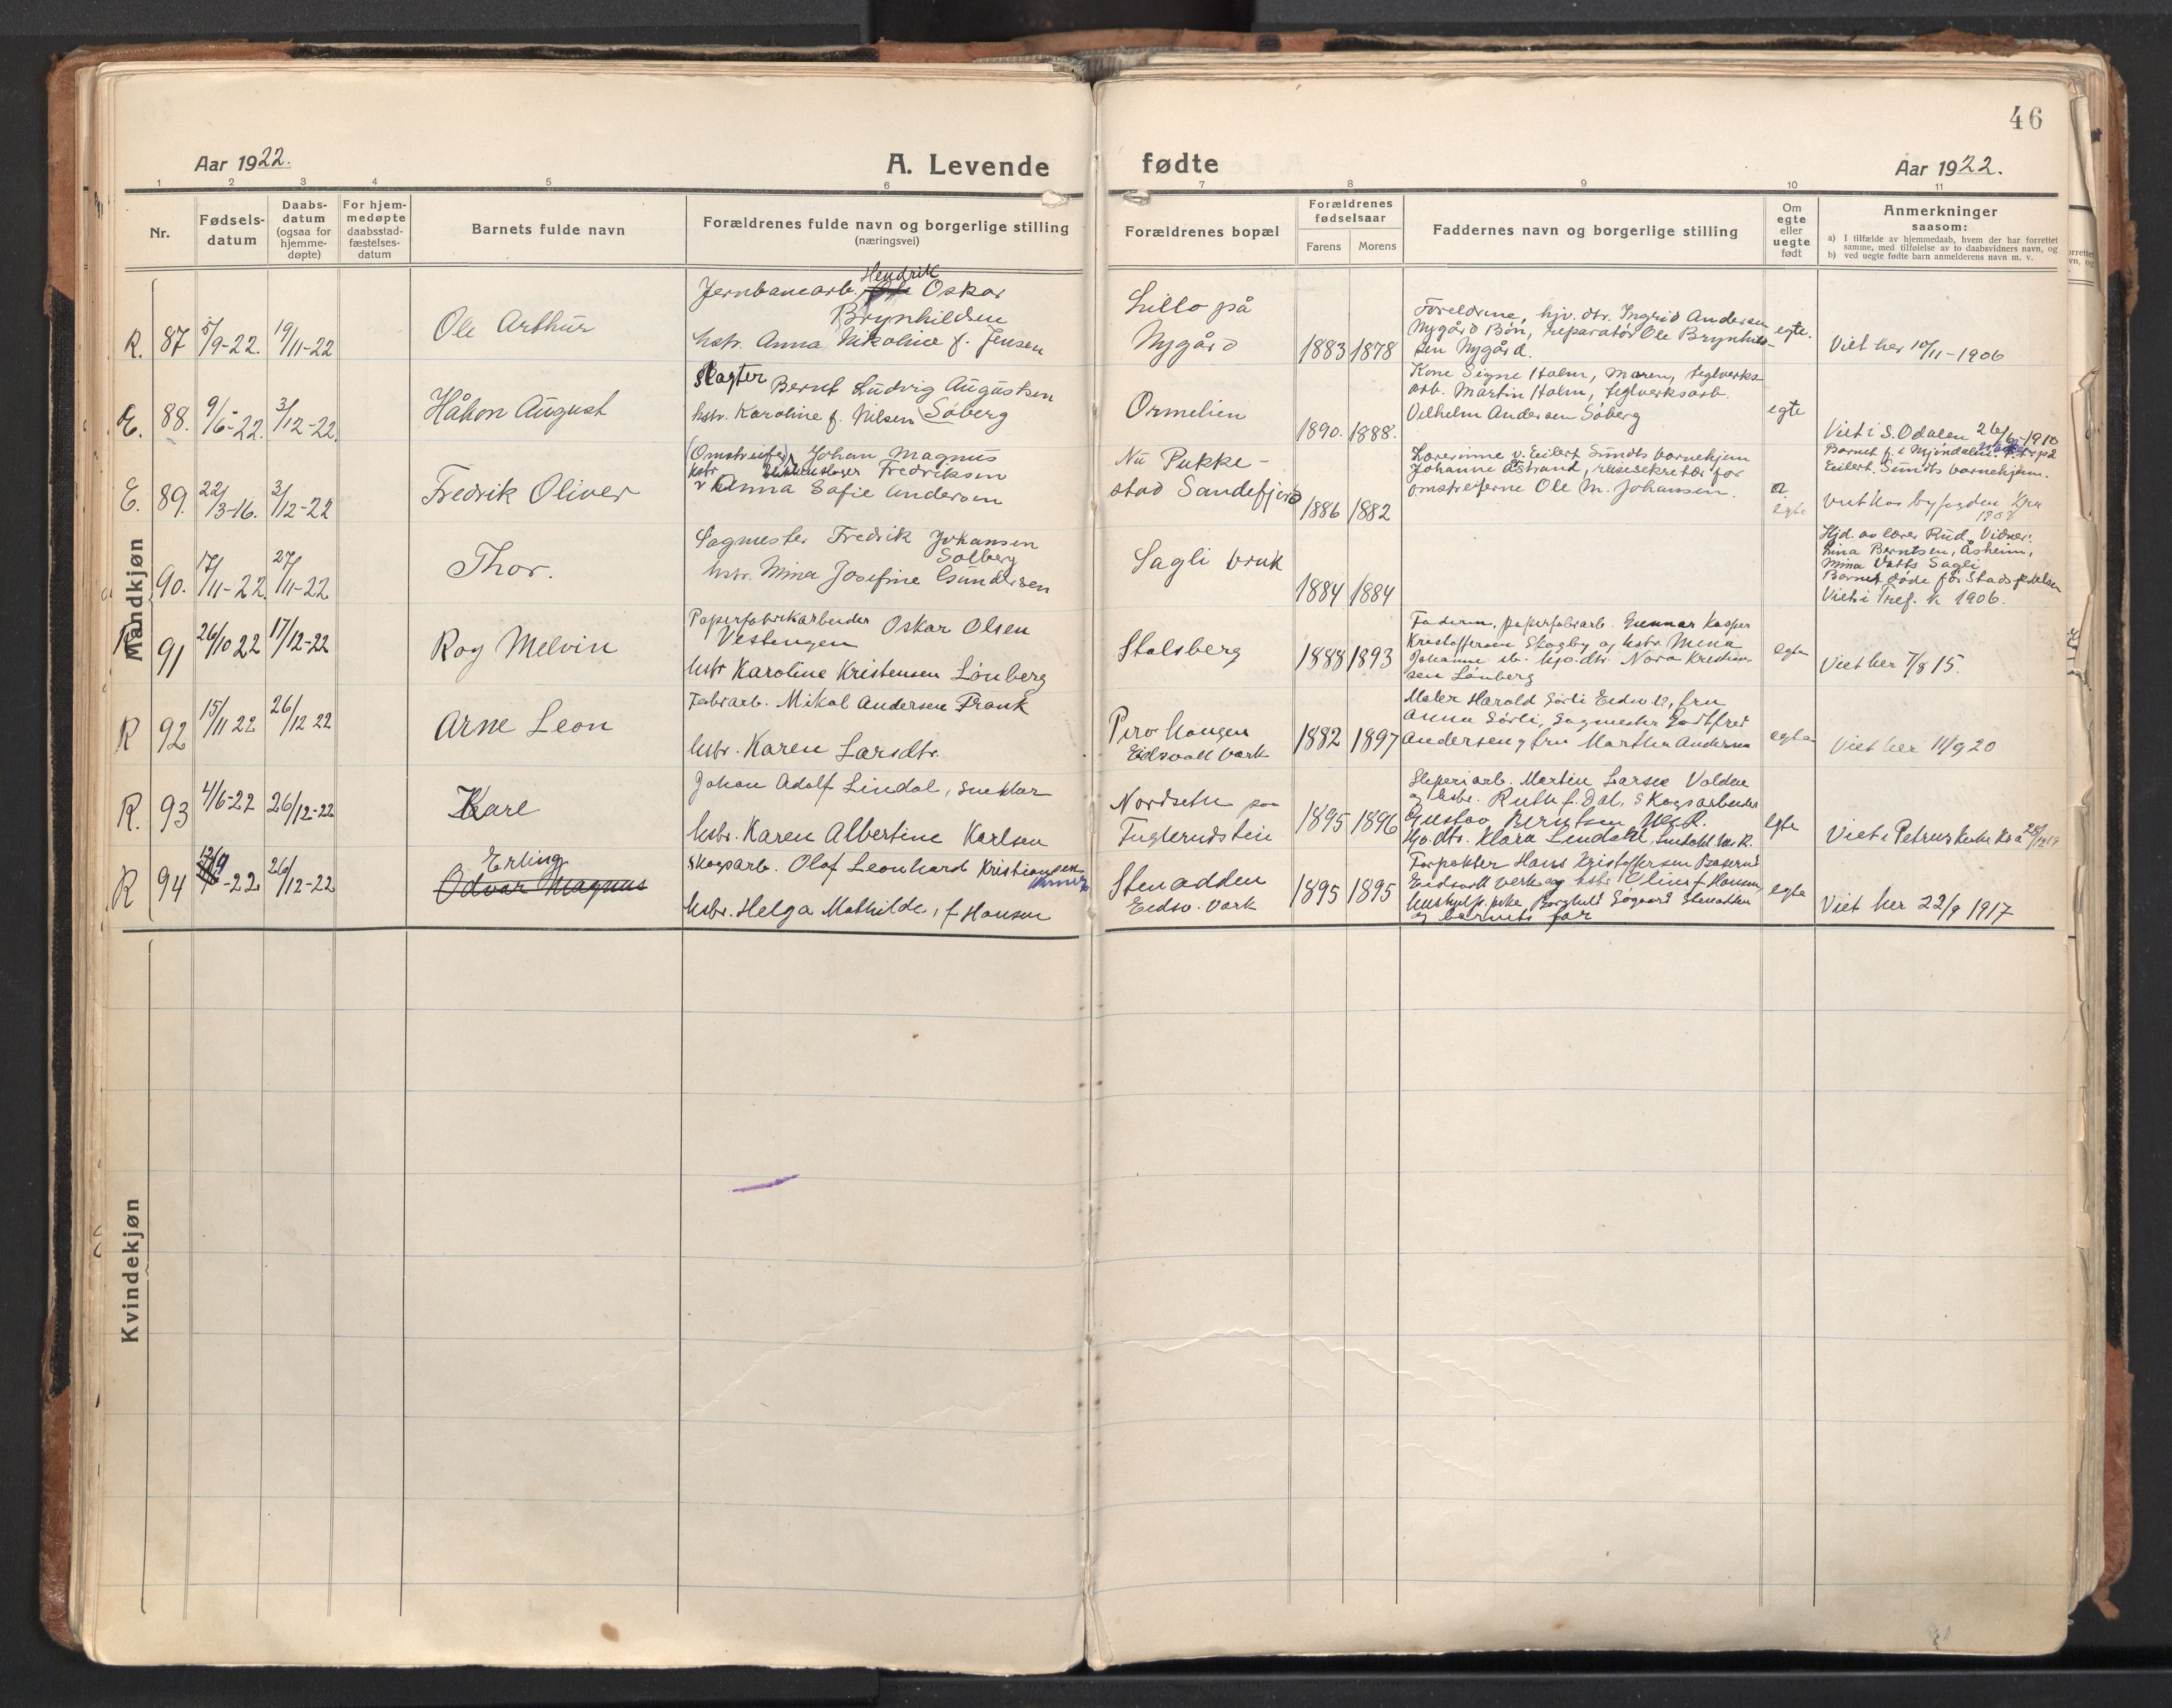 46
Aar 1922.
A. Levende
fødte
Aar 1922.
1 2 3 4 5 6 7 8 9 10 11
Nr.
Fødsels-
datum
Daabs-
datum
(ogsaa for
hjemme-
døpte)
For hjem-
medøpte
daabsstad-
fæstelses-
datum
Barnets fulde navn
Forældrenes fulde navn og borgerlige stilling
(næringsvei)
Forældrenes bopæl
Forældrenes
fødselsaar
Farens Morens
Faddernes navn og borgerlige stilling
Om
egte
eller
uegte
født
Anmerkninger
saasom:
a) I tilfælde av hjemmedaab, hvem der har forrettet
samme, med tilføielse av to daabsvidners navn, og
b) ved uegte fødte barn anmelderens navn m. v.
Mandkjøn
R. 87 5/9-22. 19/11-22
Ole Arthur
Hendrik
Jernbanearb. Oskar
Brynhildsen
hstr. Anna Nikoline f. Jensen
Lillo på
Nygård
1883 1878
Foreldrene, hjv. dtr. Ingrid Andersen
Nygård Bøn, reparatør Ole Brynhild-
sen Nygård.
egte.
Viet her 10/11-1906
E. 88. 9/6-22. 3/12-22.
Håkon August
Slagter Bernt Ludvig Augustsen
hstr. Karoline f. Nilsen Søberg
Ormelien
1890. 1888.
Kone Signe Holm, Maren, teglverks-
arb. Martin Holm, teglverksarb.
Vilhelm Andersen Søberg
egte
Viet i S. Odalen 26/6-1910
E. 89. 22/3-16. 3/12-22
Fredrik Oliver
(Omstreifer) Johan Magnus
hstr Fredriksen
Anna Sofie Andersen
Nu Pukke-
stad Sandefjord
1886 1882
Lærerinne v. Eilert Sundts barnehjem
Johanne Østrand, reisesekretær for
omstreiferne Ole M. Johansen.
egte
Barnet f. i Mjøndalen
Eilert. Sundts barnehjem.
Viet hos byfogden Kra
90. 17/11-22. 27/11-22
Thor.
Sagmester Fredrik Johansen
Solberg
hstr. Mina Josefine Gundersen
Sagli bruk
1884 1884
Hjd. av lærer Rud. Vidner:
Lina Berntsen, Åsheim,
Mina Sagli
Barnet døde før Stadfestelsen
Viet i Tref. k 1906.
R 91 26/10 22 17/12-22
Roy Melvin
Papirfabrikarbeider Oskar Olsen
Vestengen
hstr Karoline Kristensen Lønberg
Stolsberg
1888 1893
Faderen, papirfabrarb. Gunnar Kasper
Kristoffersen Skogby og hstr. Mina
Johanne Hjv. dtr. Nora Kristen-
sen Lønberg
egte
Viet her 7/8 15.
R 92 15/11 22 26/12 22
Arne Leon
Fabrarb. Mikal Andersen Frank
hstr. Karen Larsdtr.
Eidsvoll Værk
1882 1897
Maler Harald Sørli Eidsv. V., fru
Anna Sørli, Sagmester Godtfred
Andersen og fru Martha Andersen
egte
Viet her 11/9 20
R. 93 4/6-22 26/12-22
Kare
Johan Adolf Lindal, snekker
hstr. Karen Albertine Karlsen
Nordseth paa
Fuglerudsteie
1895 1896
Sliperiarb. Martin Larsen Volden
og hstr. Ruth f. Dal, Skogsarbeider
Gustav Berntsen
Hjv. dtr. Klara Lindahl,
egte
Viet i Petrus kirke Kra
R 94 -22. 26/12-22
Erling
Odvar Magnus
Skogsarb. Olaf Leonhard Kristiansen
hstr. Helga Mathilde, f Hansen
Stenadden
Eidsv. Værk
1895 1895
Forpakter Hans Kristoffersen
Eidsvoll Verk og hstr. Oline f Hansen
Borghild Søgaard Stenadden
og barnets far
egte
Viet her 22/9 1917
Kvindekjøn